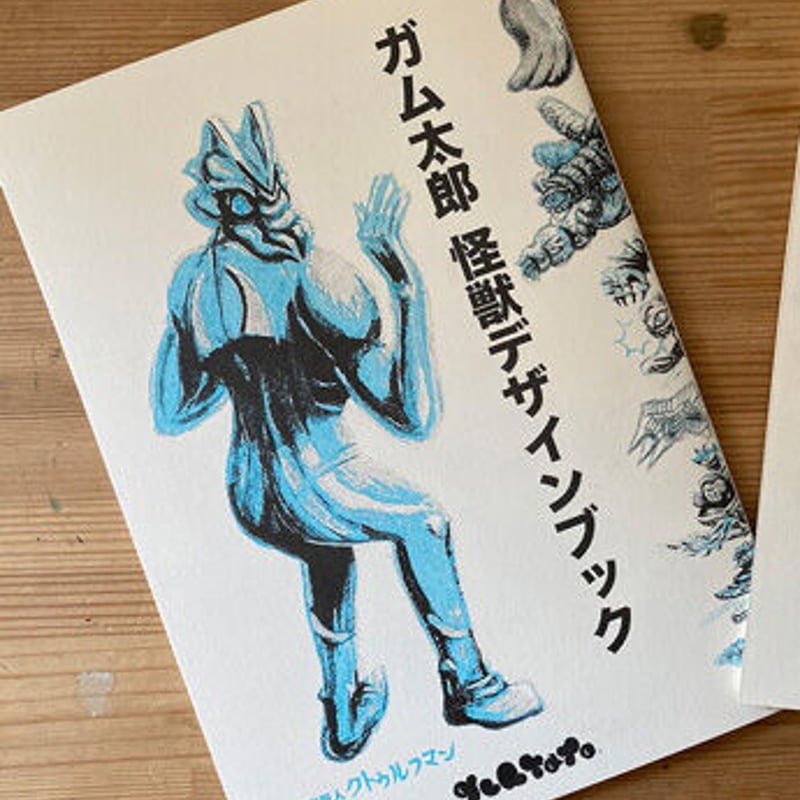 ガム太郎 怪獣デザインブック
クトゥルフマン